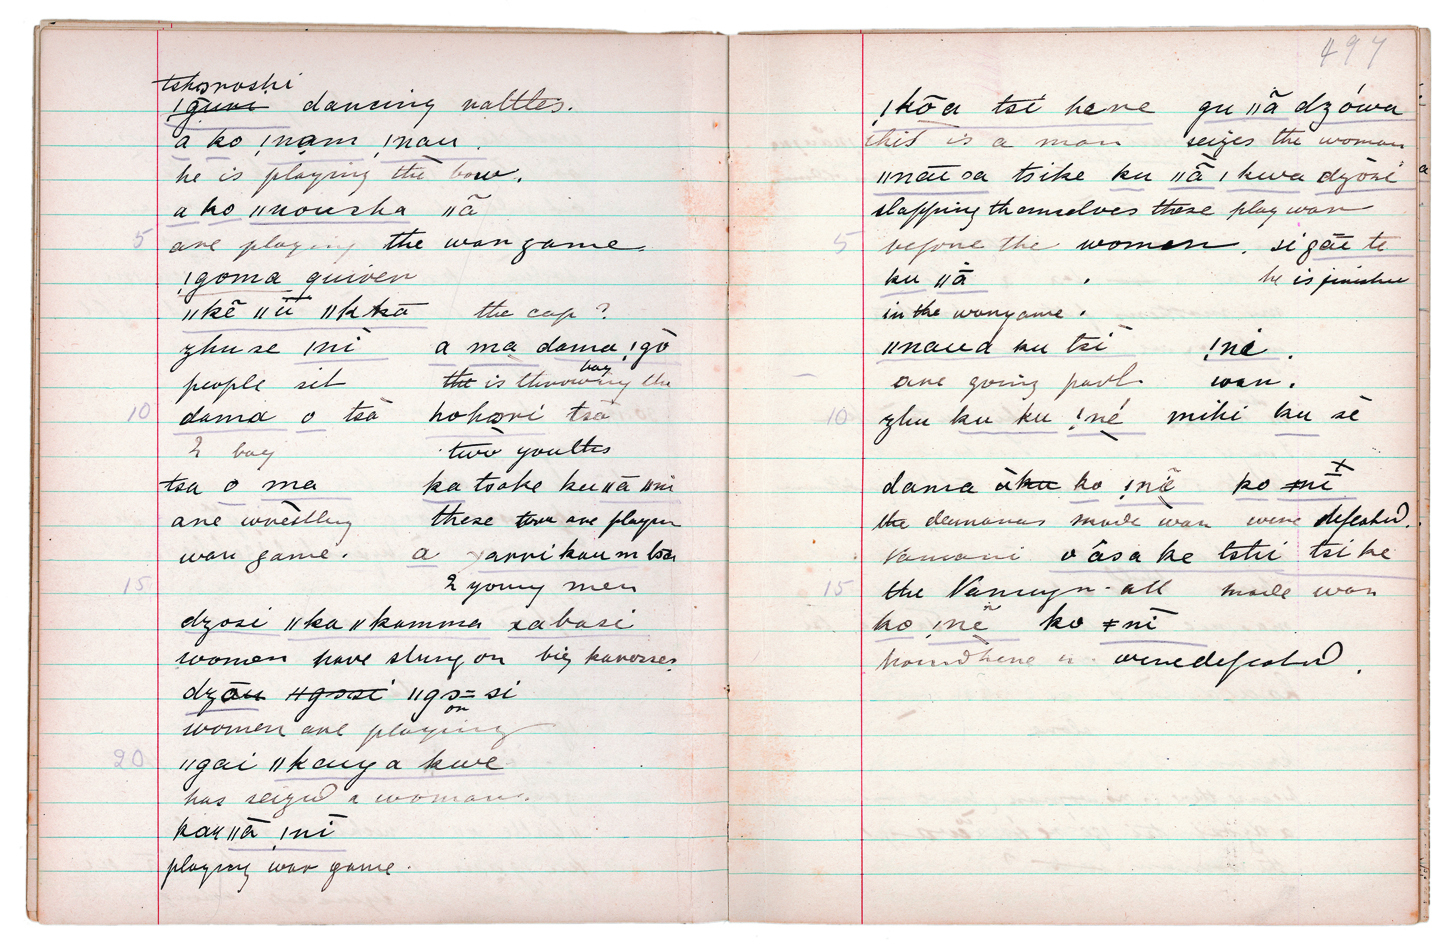 tshoroshi
!guru dancing rattles.
a ko !nam !nau.
he is playing the bow.
a ko ǁnousha ǁã
5 are playing the war game.
!goma quiver
ǁkē ǁū ǁkka the cap ?
zhu se !nī a ma dama !gō
people sit the is throwing the
boy
10 dama o tsā hohori tsā
2 boy two youths
tsa o ma ka tsake ku ǁā ǁni
are wrestling these two are playing
war game. a arrikaumtsa
15 2 young men
dzosi ǁka ǁkamma xabasi
women have slung on big karosses
dzāu ǁgosi ǁgo=si
women are playing
on
20 ǁgai ǁkauya kwe
has seized a woman.
kaz ǁā !nī
playing war game.
497
!kōa tsi hene gu ǁã dzówa
this is a man seizes the woman
ǁnāe sa tsike ku ǁā !kwa dzōsi
slapping themselves these play war
5 before the women. si gāe te
ku ǁā . he is finished
in the war game.
ǁnaua ku tsī !né.
are going past war.
10 zhu ku ku !né mihi ku sē
dama ūku ko !nē ko ≠nī x
the damaras made war were defeated.
Namani o āsa ke tshi tsi ke
15 the Namayn - all made war
ko !nē ko ≠nī
were defeated.